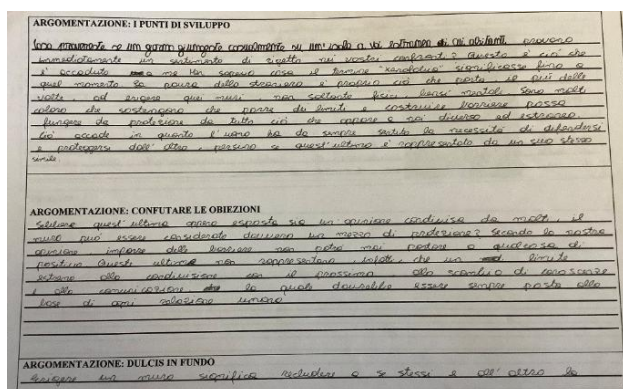 ARGOMENTAZIONE: I PUNTI DI SVILUPPO
Cosa provereste se un giorno giungeste casualmente su un' isola a voi estranea di cui abitanti, provano
immediatamente un sentimento di rigetto nei vostri confronti? Questo è ciò che
è accaduto a me Non sapevo cosa il termine "xenofobia" significasse fino a
quel momento la paura dello straniero è proprio ciò che porta, il più delle
volte, ad erigere quei muri non soltanto fisici bensì mentali Sono molti
coloro che sostengono che porre dei limiti e costruire barriere possa
fungere da protezione da tutto ciò che appare a noi diverso ed estraneo.
Ciò accade in quanto l'uomo ha da sempre sentito la necessità di difendersi
e proteggersi dall' altro, persino se quest'ultimo è rappresentato da un suo stesso
simile.
ARGOMENTAZIONE: CONFUTARE LE OBIEZIONI
Sebbene quest'ultima appena esposta sia un'opinione condivisa da molti, il
muro può essere considerato davvero un mezzo di protezione? Secondo la nostra
opinione imporre delle barriere non potrà mai portare a qualcosa di
positivo Queste ultime non rappresentano, infatti, che un limite
estremo alla condivisione con il prossimo allo scambio di conoscenze
e alla comunicazione la quale dovrebbe essere sempre posta alla
base di ogni relazione umana
ARGOMENTAZIONE: DULCIS IN FUNDO
Erigere un muro significa precludere a se stessi e all' altro la